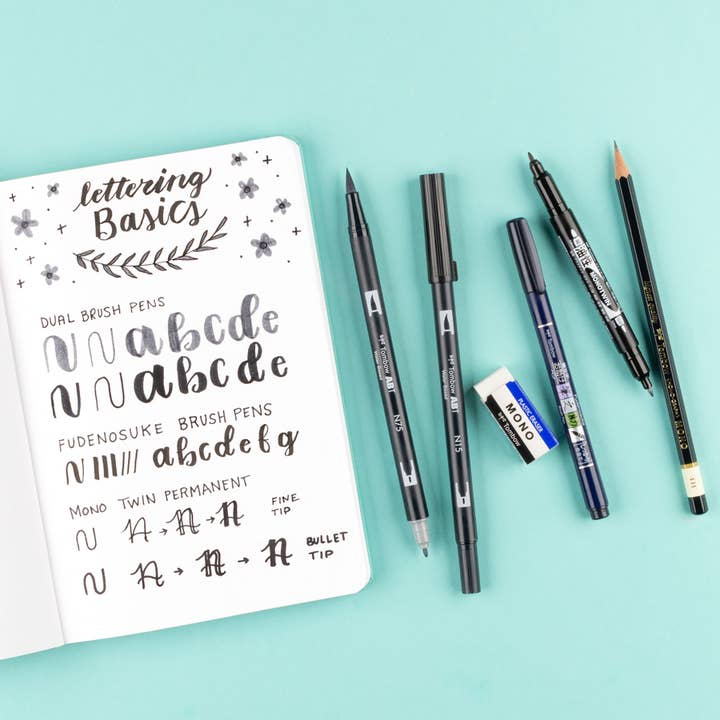 lettering
Basics
DUAL BRUSH PENS
n n abcde
n n abcde
FUDENOSUKE BRUSH PENS
n abcdefg
MONO TWIN PERMANENT
n n → n → n FINE
TIP
n n → n → n BULLET
TIP
Tombow ABT
N75
Tombow ABT
N15
PLASTIC ERASER
MONO
Tombow
MONO TWIN
Tombow
MONO